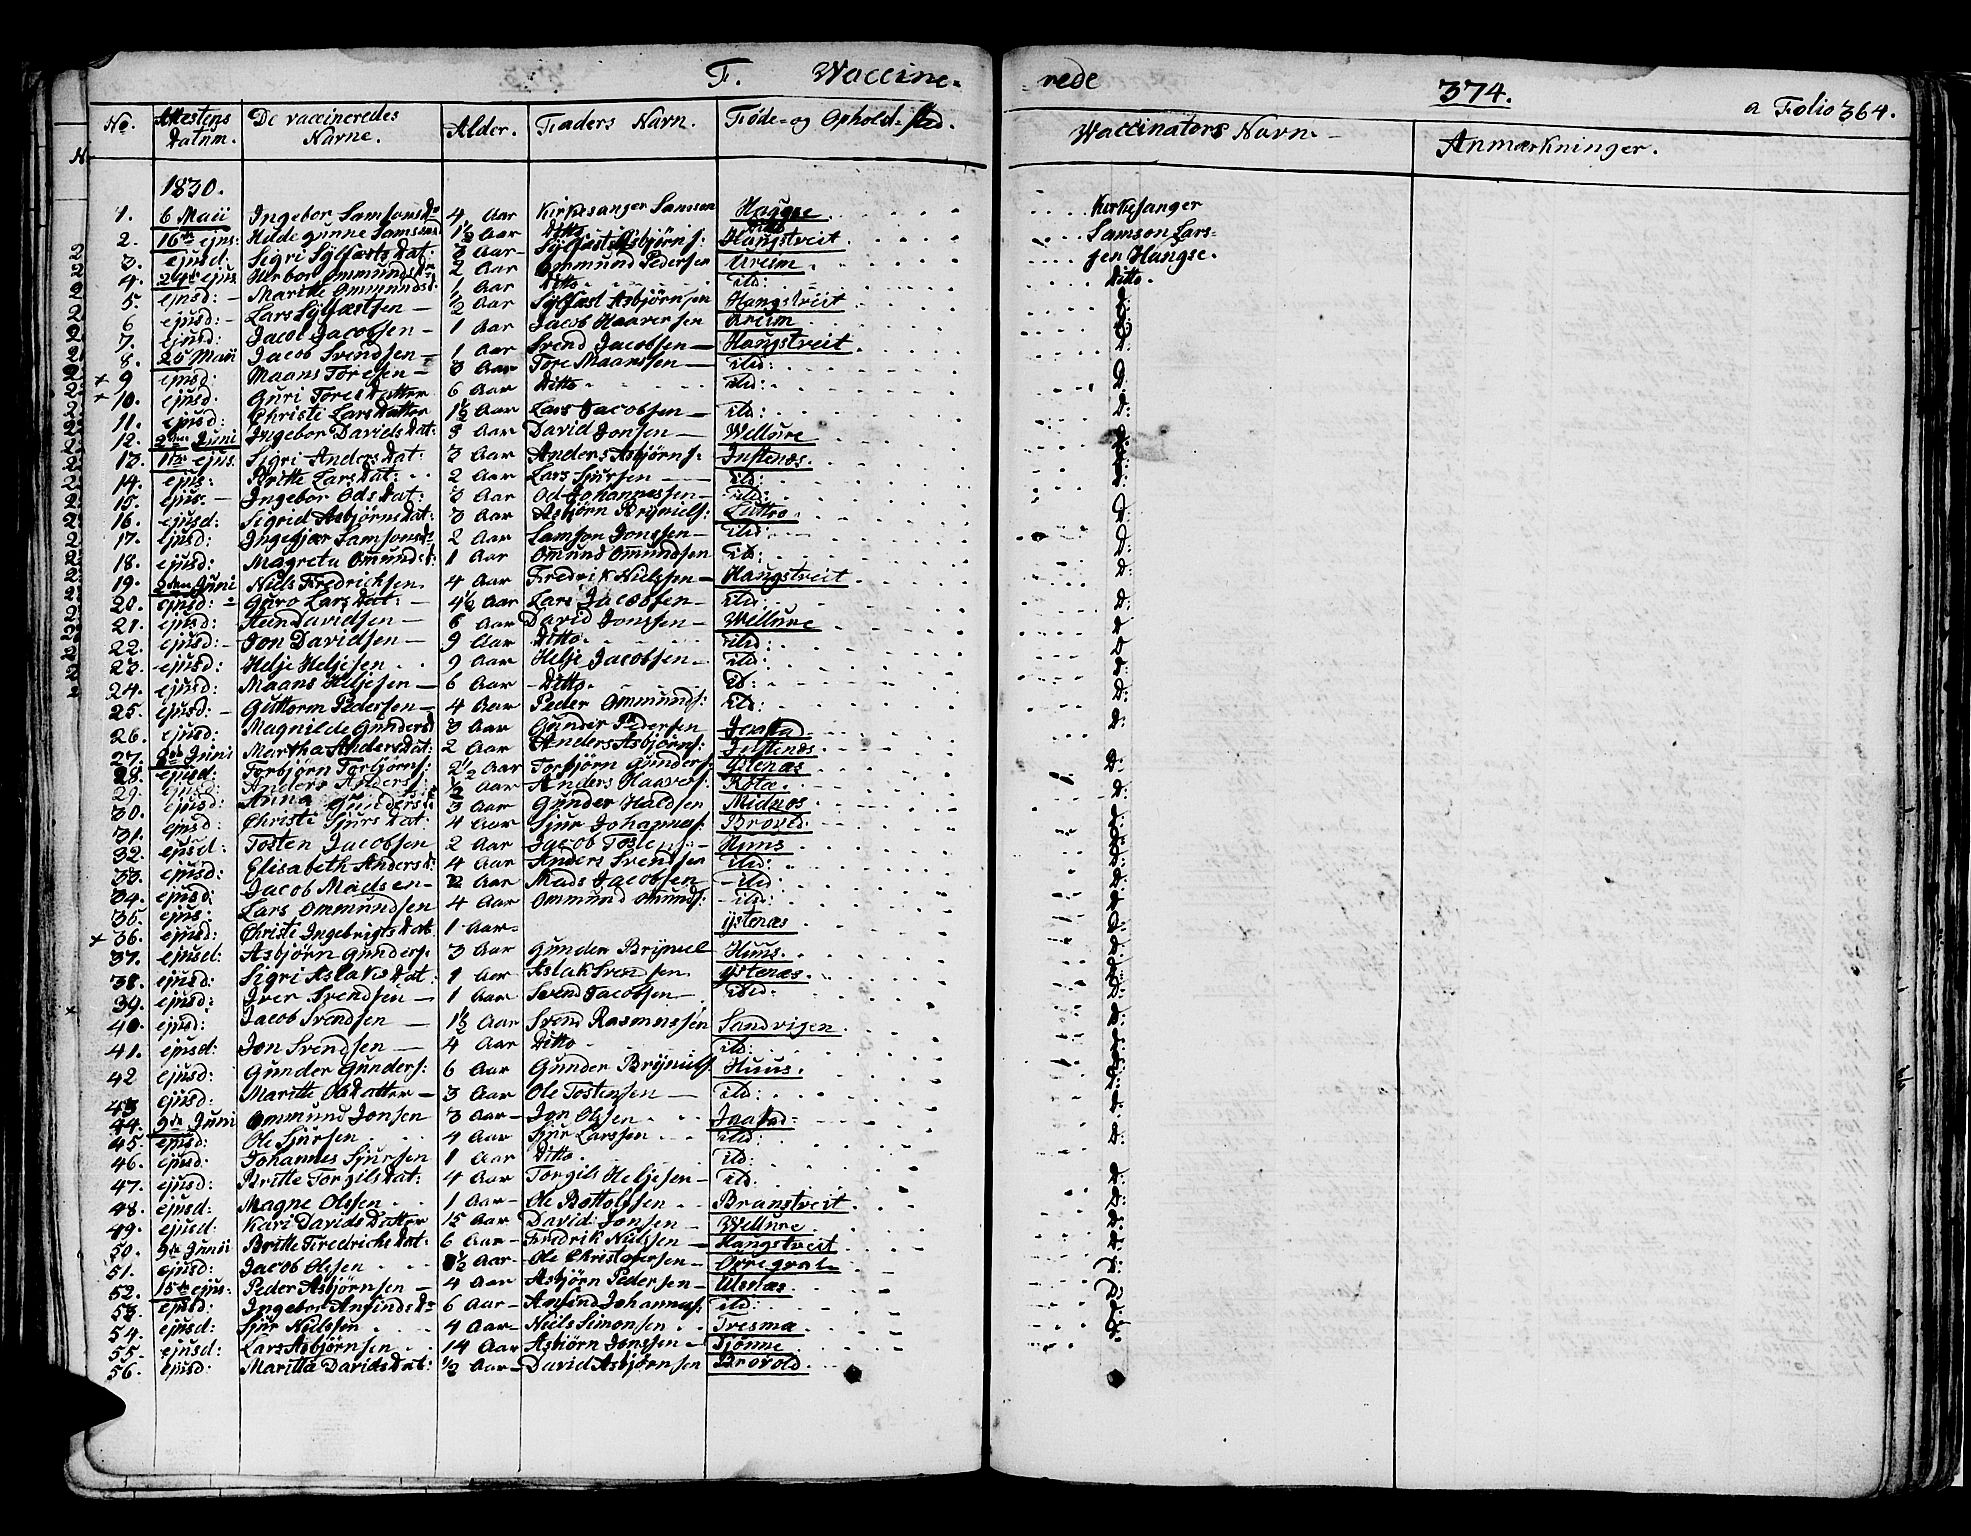 F. Waccine- rede 374. a Folio 364.
No. Attestens Datum. De vaccineredes Navne. Alder. Faders Navn. Føde- og Ophold-sted. Waccinators Navn. Anmærkninger.
1830.
1. 6 Maii Ingebor Samsons D. 4 Aar Kirkesanger Samson Haugse Kirkesanger
2. 16de ejus: Hilde gunne Samsons 1½ Aar Ditto Ditto Samson Lars-
3. ejusd: Sigri Sylfæsts Dat: Aar Sylfæst Asbjørns: Haugstveit sen Haugse.
4. 24de ejus Herbor Ommunds 2 Aar Ommund Pedersen Areim Ditto.
5. ejusd: Maritte Ommundsd 1 Aar Ditto ild: D:
6 ejusd: Lars Sylfæstsen ½ Aar Sylfæst Asbjørnsen Haugstveit D:
7. Ejusd: Jacob Jacobsen 1 Aar Jacob Haaversen Areim D:
8. 25 Maii Jacob Svendsen 1 Aar Svend Jacobsen Haugstveit D:
+ 9 ejusd: Maans Toresen 3 Aar Tore Maanssen ild: D:
+ 10. ejusd: Guri Tores Datter 6 Aar Ditto ild: D:
11. ejusd: Christi Lars Datter 1½ Aar Lars Jacobsen ild: D:
12. 2den Juni Ingebor Davids Dat: 3 Aar David Jonsen Wellure D:
13. 11te ejus. Sigri Anders Dat: 3 Aar Anders Asbjørns: Instenæs. D:
14. ejus: Britte Lars Dat: 2 Aar Lars Sjursen ild: D:
15. ejus. Ingebor Ods Dat: 3 Aar Od Johannessen ild: D:
16. ejusd: Sigrid Asbjørns Dat: 3 Aar Asbjørn Bryniels: Luttro D:
17. ejusd: Ingegjær Samsonsd. 2 Aar Samson Jonssen ild: D:
18. ejusd: Magreta Omundsd: 1 Aar Omund Omundsen ild: D:
19. 2den Juni Niels Fredrichsen 4 Aar Fredrik Nielssen Haugstveit D:
20. ejusd: Guro Lars Dat: 4½ Aar Lars Jacobsen ild: D:
21. ejusd: Davidsen 6 Aar David Jonssen Wellure D
22. ejusd: Jon Davidsen 9 Aar Ditto ild: D
23. ejusd: Helje Heljesen 9 Aar Helje Jacobsen ild: D:
24. ejusd: Maans Heljesen 6 Aar Ditto ild: D:
25. ejusd: Guttorm Pedersen 4 Aar Peder Ommunds: ild: D:
26. ejusd: Magnilde Gundersd 3 Aar Gunder Pedersen Jaastad D:
27. 9de Juni Martha Anders Dat: 2 Aar Anders Asbjørns: Instenæs D:
28. ejusd: Torbjørn Torbjørns: 2½ Aar Torbjørn Gunders: Ystenæs D:
29. ejusd: Anders Anders: ½ Aar Anders Haavers: Kotæ D:
30. ejusd: Anna Gundersd: 3 Aar Gunder Haldsen Midnæs D:
31. ejusd: Christi Sjurs Dat: 4 Aar Sjur Johannes: Brovold D:
32. ejusd: Tosten Jacobsen 2 Aar Jacob Tostens: Huus D:
33. ejusd: Elisabeth Anders d: 4 Aar Anders Svendsen ild: D:
34. ejusd: Jacob Madsen 2 Aar Mads Jacobsen ild: D:
35. ejus: Lars Ommundsen 4 Aar Ommund Omunds: ild: D:
+ 36. ejusd: Christi Ingebrigts Dat 1 Aar ystenæs D:
37. ejusd: Asbjørn Gunders: 3 Aar Gunder Bryniel Huus. D:
38. ejusd: Sigri Aslaks Dat: 1 Aar Aslak Svendsen ystenæs. D:
39. ejusd: Iver Svendsen 1 Aar Svend Jacobsen ild: D:
40. ejusd: Jacob Svendsen 1½ Aar Svend Rasmussen Sandvigen. D:
41. ejusd: Jon Svendsen 4 Aar Ditto ild: D:
42 ejusd: Gunder Gunders: 6 Aar Gunder Bryniels Huus. D:
43 ejusd: Maritte Ols Datter 3 Aar Ole Tostensen ild: D:
44. 9de Juni Ommund Jonsen 3 Aar Jon Olssen Jaastad D:
45. ejusd: Ole Sjursen 4 Aar Sjur Larssen ild: D:
46. ejusd: Johannes Sjursen 1 Aar Ditto ild: D:
47. ejusd: Britte Torgils Dat: 4 Aar Torgils Heljesen ild: D:
48. ejusd: Magne Olssen 1 Aar Ole Bottolfssen Branstveit D:
49. ejusd: Kari Davids Datter 15 Aar David Jonsen Wellure D:
50. 9de Junii Britte Fredrichs Dat: 6 Aar Fredrik Nielssen Haugstveit D:
51. ejusd: Jacob Olssen ½ Aar Ole Christophersen D:
52. 15de ejus: Peder Asbjørnsen 4 Aar Asbjørn Pedersen Ulsnæs D:
53. ejusd: Ingebor Ansinds D 6 Aar Ansind Johannes: ild: D:
54. ejusd: Sjur Nielssen 4 Aar Niels Simonsen Tresmæ D:
55. ejusd: Lars Asbjørnsen 14 Aar Asbjørn Jonssen Tjønne
56. ejusd: Maritta Davids Dat: ½ Aar David Asbjørnsen Brovold.